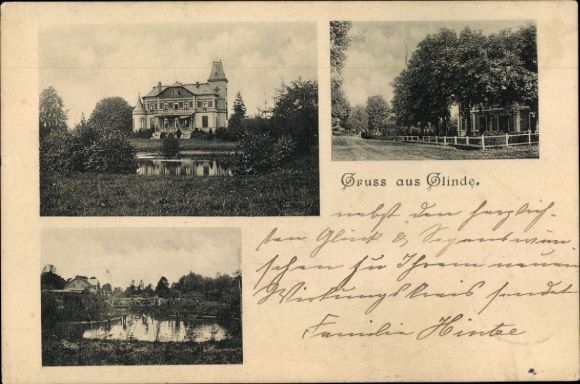 Gruss aus Glinde.
nebst den herzlich-
sten Glück & Segenswün-
schen zu Ihrem neuen
Wirkungskreis sendet
Familie Hintze